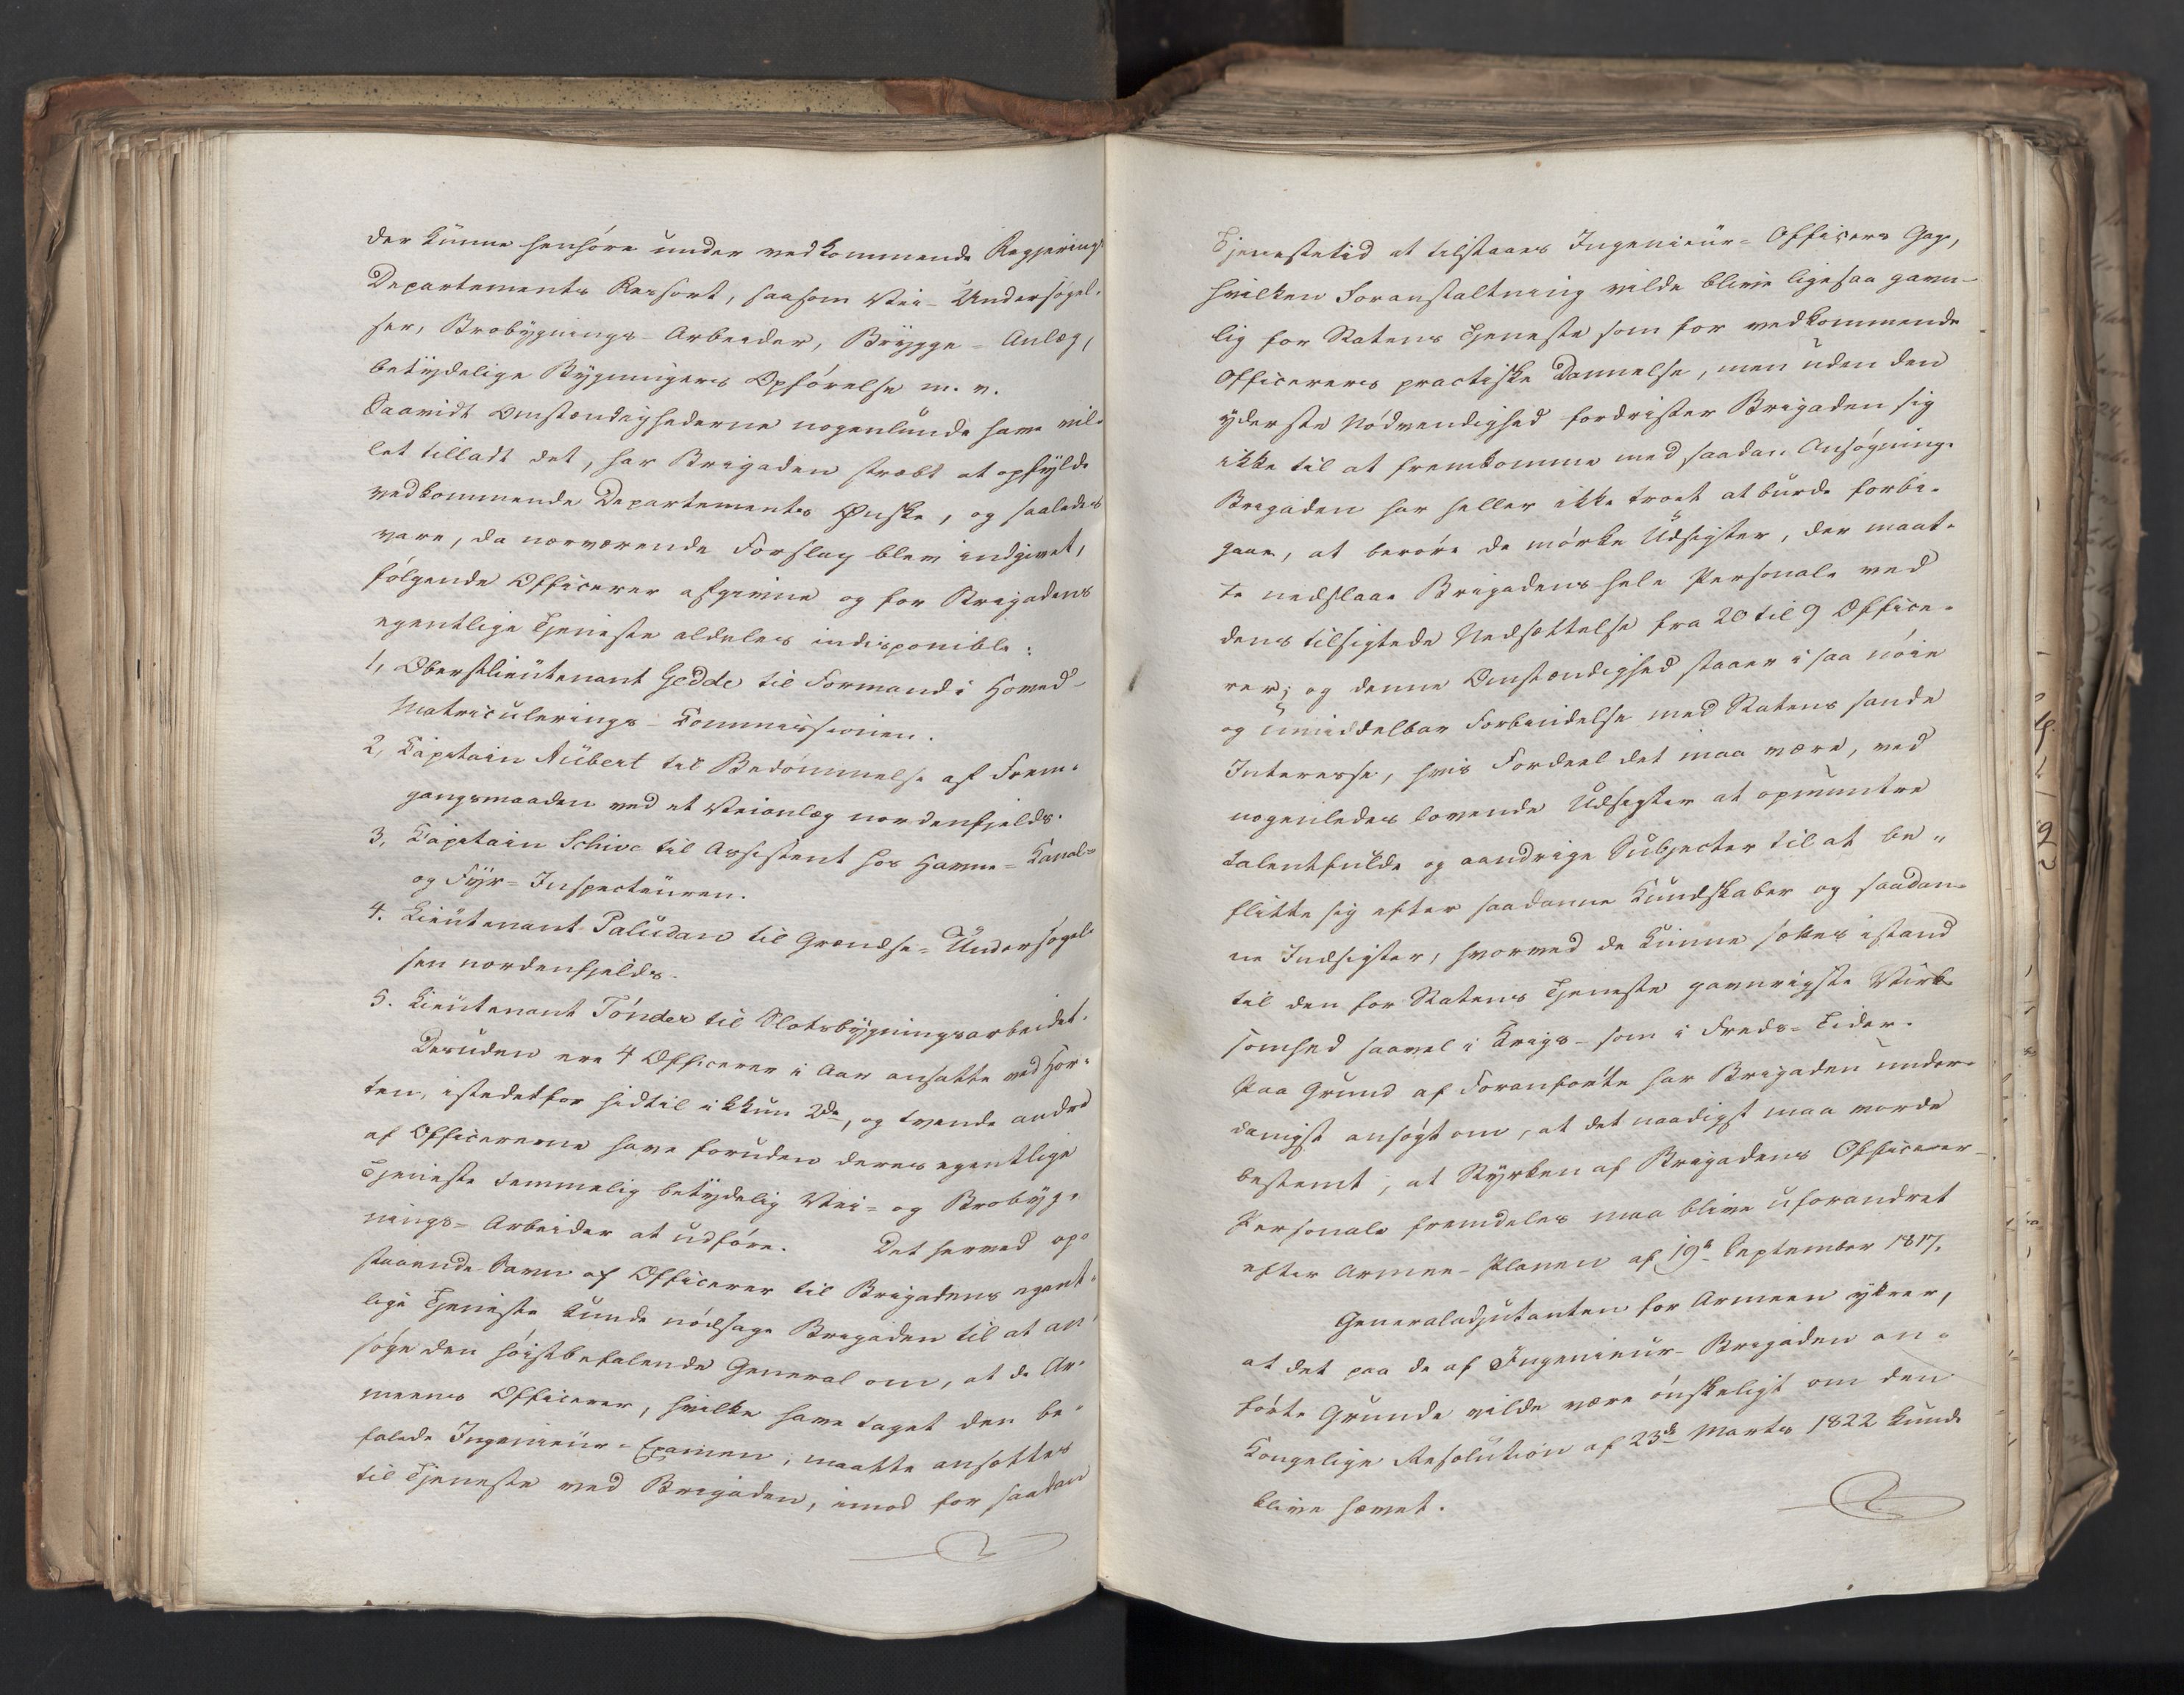 der kunne henhøre under vedkommende Regjerings
Departements Ressort, saasom Vei-Undersøgel-
ser, Brobygnings-Arbeider, Brygge-Anlæg,
betydelige Bygningers Opførelse m. v.
Saavidt Omstændighederne nogenlunde have vil-
let tilladt det, har Brigaden stræbt at opfylde
vedkommende Departements Ønske, og saaledes
vare, da nærværende Forslag blev indgivet,
følgende Officerer afgivne og for Brigadens
egentlige Tjeneste aldeles indisponible:
1, Oberstlieutenant Gedde til Formand i Hoved-
Matriculerings-Commissionen.
2, Capitain Aubert til Bedømmelse af Frem-
gangsmaaden ved et Veianlæg nordenfjelds.
3, Capitain Schive til Assistent hos Havne-Canal-
og Fyr-Inspecteuren.
4. Lieutenant Paludan til Grændse-Undersøgel-
sen nordenfjelds.
5. Lieutenant Tønder til Slotsbygningsarbeidet.
Desuden ere 4 Officerer i Aar ansatte ved Hor-
ten, istedetfor hidtil ikkun 2de, og tvende andre
af Officererne have foruden deres egentlige
Tjeneste temmelig betydelig Vei- og Brobyg-
nings-Arbeider at udføre. Det herved op-
staaende Savn af Officerer til Brigadens egent-
lige Tjeneste kunde nødsage Brigaden til at an-
søge den høistbefalende General om, at de Ar-
meens Officerer, hvilke have taget den be-
falede Ingenieur-Examen, maatte ansættes
til Tjeneste ved Brigaden, imod for saadan
Tjenestetid at tilstaaes Ingenieur-Officers Gage,
hvilken Foranstaltning vilde blive ligesaa gavn-
lig for Statens Tjeneste som for vedkommende
Officerers practiske Dannelse, men uden den
yderste Nødvendighed fordrister Brigaden sig
ikke til at fremkomme med saadan Ansøgning.
Brigaden har heller ikke troet at burde forbi-
gaae, at berøre de mørke Udsigter, der maat-
te nedslaae Brigadens hele Personale ved
dens tilsigtede Nedsættelse fra 20 til 9 Office-
rer; og denne Omstændighed staaer i saa nøie
og umiddelbar Forbindelse med Statens sande
Interesse, hvis Fordeel det maa være, ved
nogenledes lovende Udsigter at opmuntre
talentfulde og aandrige Subjecter til at be-
flitte sig efter saadanne Kundskaber og saadan-
ne Indsigter, hvorved de kunne sættes istand
til den for Statens Tjeneste gavnrigste Virk-
somhed saavel i Krigs- som i Freds-Tider.
Paa Grund af Foranførte har Brigaden under-
danigst ansøgt om, at det naadigst maa vorde
bestemt, at Styrken af Brigadens Officerer-
Personale fremdeles maa blive uforandret
efter Armee-Planen af 19de September 1817.
Generaladjutanten for Armeen yttrer,
at det paa de af Ingenieur-Brigaden an-
førte Grunde vilde være ønskeligt om den
Kongelige Resolution af 23de Marts 1822 kunde
blive hævet.